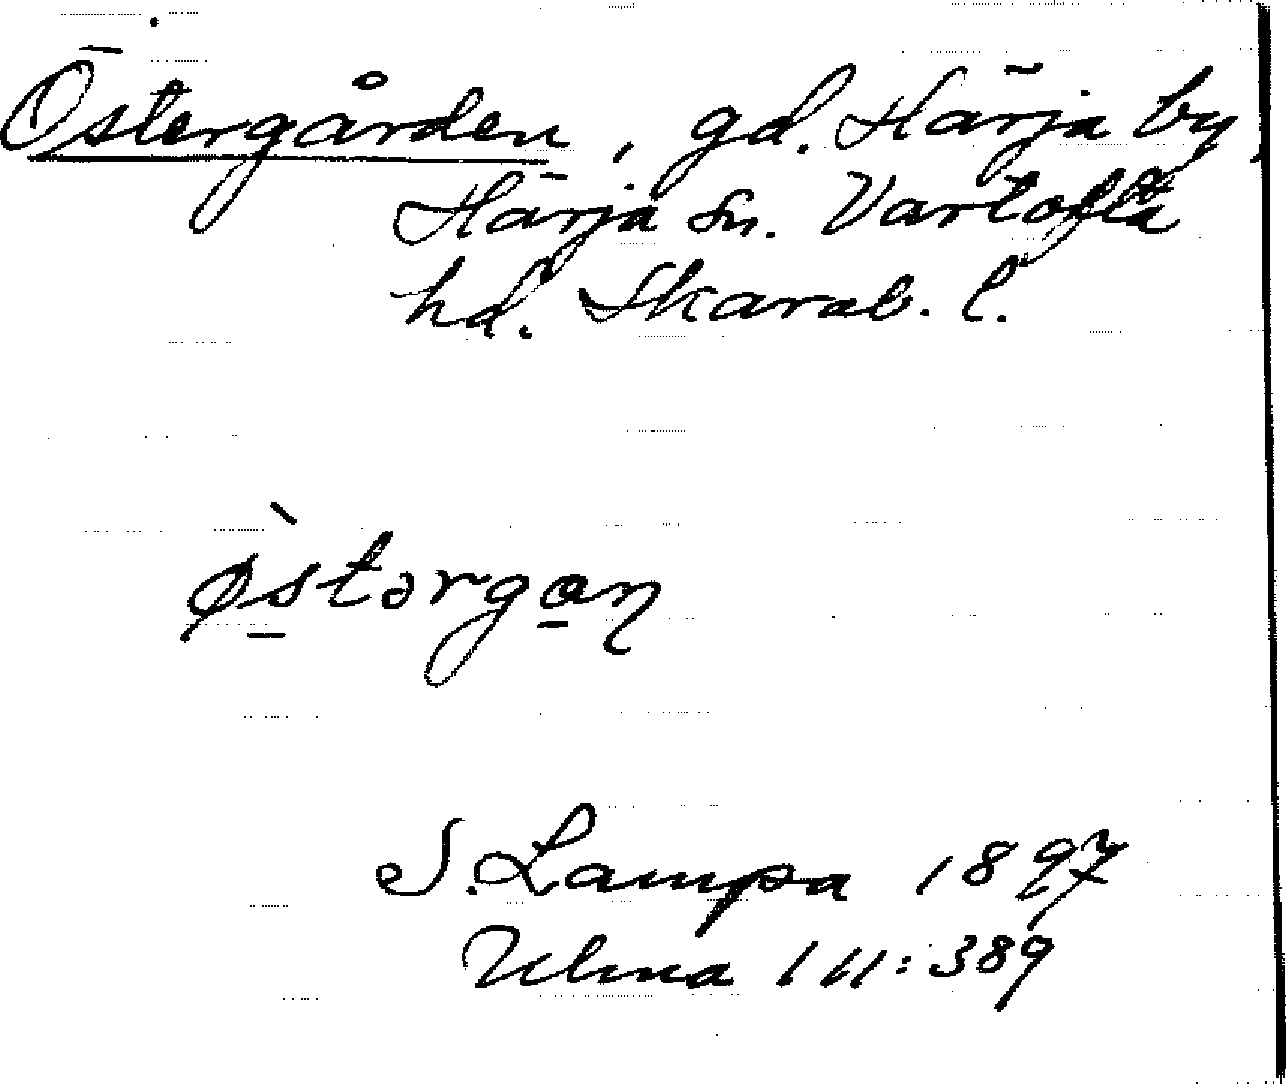 Östergården, gd. Härja by,
Härja sn. Vartofta
hd. Skarab. l.
ø̀stərgan̥
S. Lampa 1897
Ulma 111:389